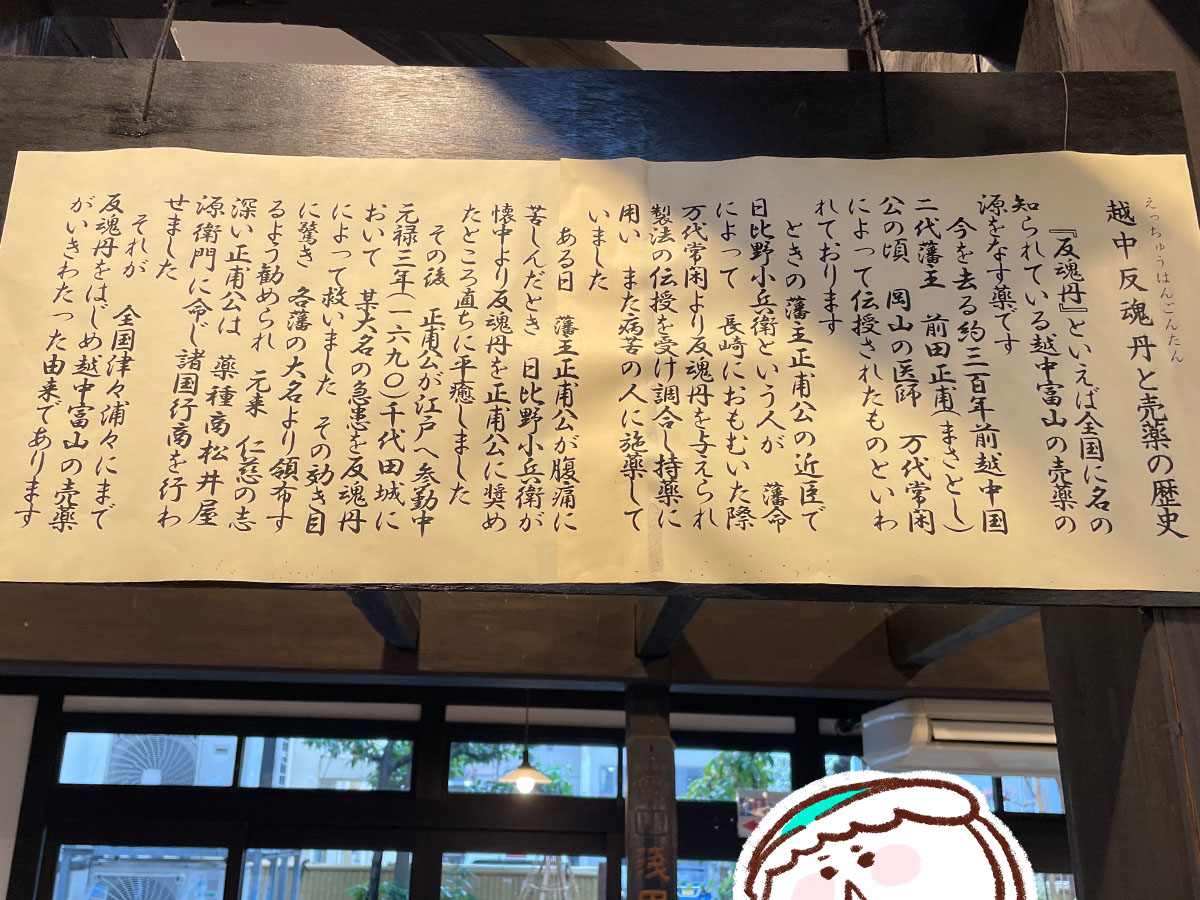 えっちゅうはんごんたん
越中反魂丹と売薬の歴史
『反魂丹』といえば全国に名の
知られている越中富山の売薬の
源をなす薬です
今を去る約三百年前越中国
二代藩主 前田正甫(まさとし)
公の頃 岡山の医師 万代常闲
によって伝授されたものといわ
れております
ときの藩主正甫公の近臣で
日比野小兵衛という人が 藩命
によって 長崎におもむいた際
万代常闲より反魂丹を与えられ
製法の伝授を受け調合し持薬に
用い また病苦の人に施薬して
いました
ある日 藩主正甫公が腹痛に
苦しんだとき 日比野小兵衛が
懐中より反魂丹を正甫公に奨め
たところ直ちに平癒しました
その後 正甫公が江戸へ参勤中
元禄三年(一六九〇)千代田城に
おいて 某大名の急患を反魂丹
によって救いました その効き目
に驚き 各藩の大名より領布す
るよう勧められ 元来 仁慈の志
深い正甫公は 薬種商松井屋
源衛門に命じ諸国行商を行わ
せました
それが 全国津々浦々にまで
反魂丹をはじめ越中富山の売薬
がいきわたった由来であります